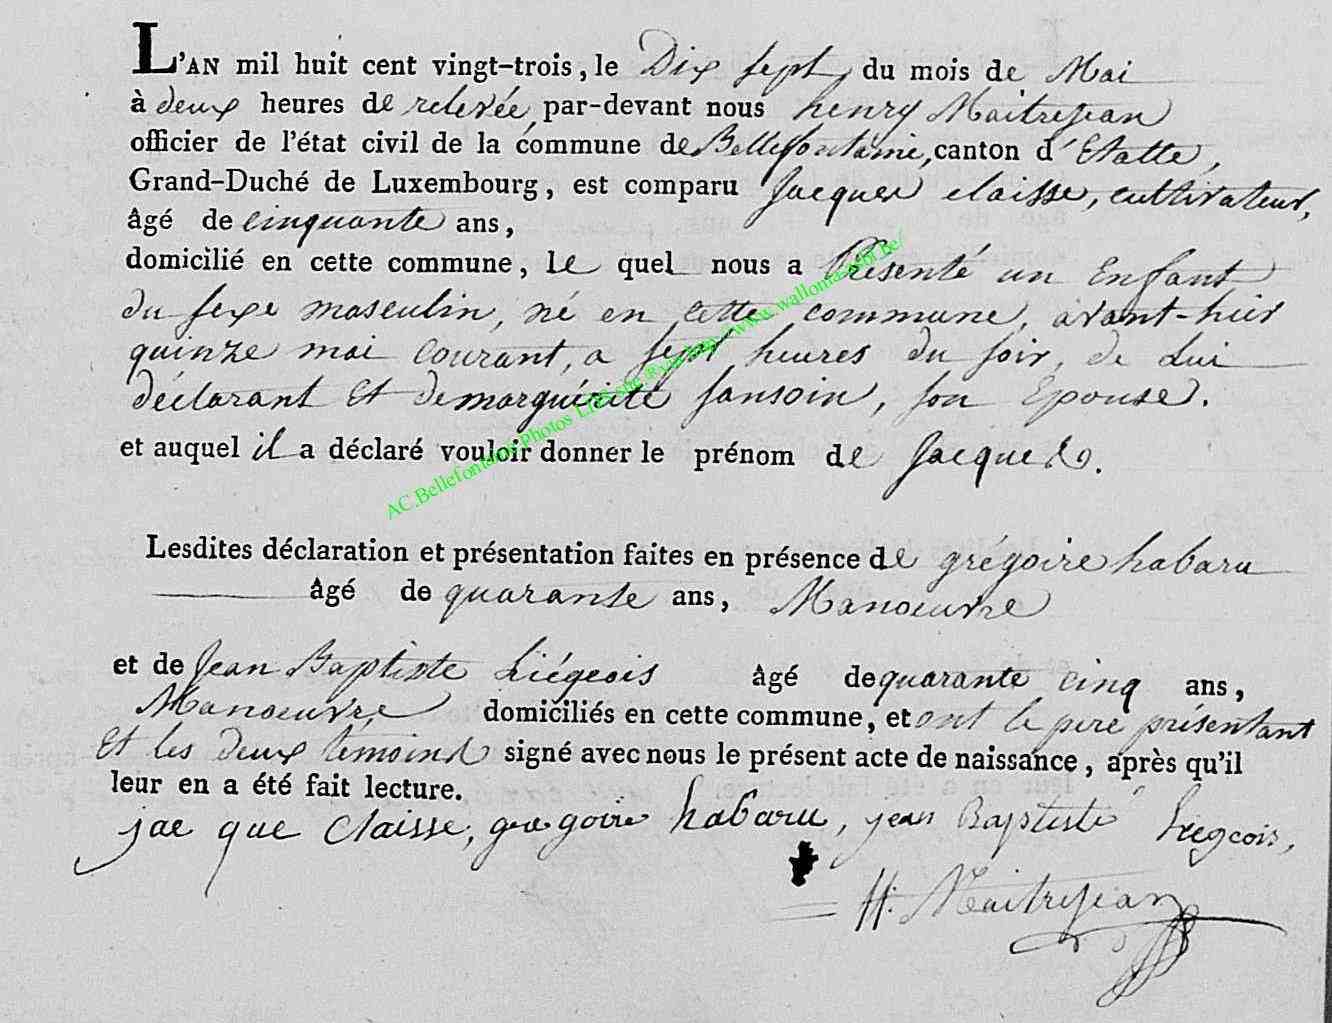 L'AN mil huit cent vingt-trois, le Dix sept, du mois de Mai
à deux heures de relevée, par-devant nous henry Maitrejean
officier de l'état civil de la commune de Bellefontaine, canton d'Etalle,
Grand-Duché de Luxembourg, est comparu Jacques claisse, cultivateur,
âgé de cinquante ans,
domicilié en cette commune, le quel nous a Présenté un Enfant
du sexe masculin, né en cette commune, avant-hier
quinze mai courant, a sept heures du soir, de Lui
déclarant Et de marguérite sansoin, son Epouse.
et auquel il a déclaré vouloir donner le prénom de Jacques.
AC.Bellefontaine Photos
www.wallonia-asbl.be/
Lesdites déclaration et présentation faites en présence de grégoire habaru
âgé de quarante ans, Manoeuvre
et de Jean Baptiste Liégeois âgé de quarante cinq ans,
Manoeuvre domiciliés en cette commune, et ont le pere présentant
Et les deux témoins signé avec nous le présent acte de naissance, après qu'il
leur en a été fait lecture.
jac que Claisse, gregoire habaru, jean Baptiste Liegeois,
H. Maitrejean